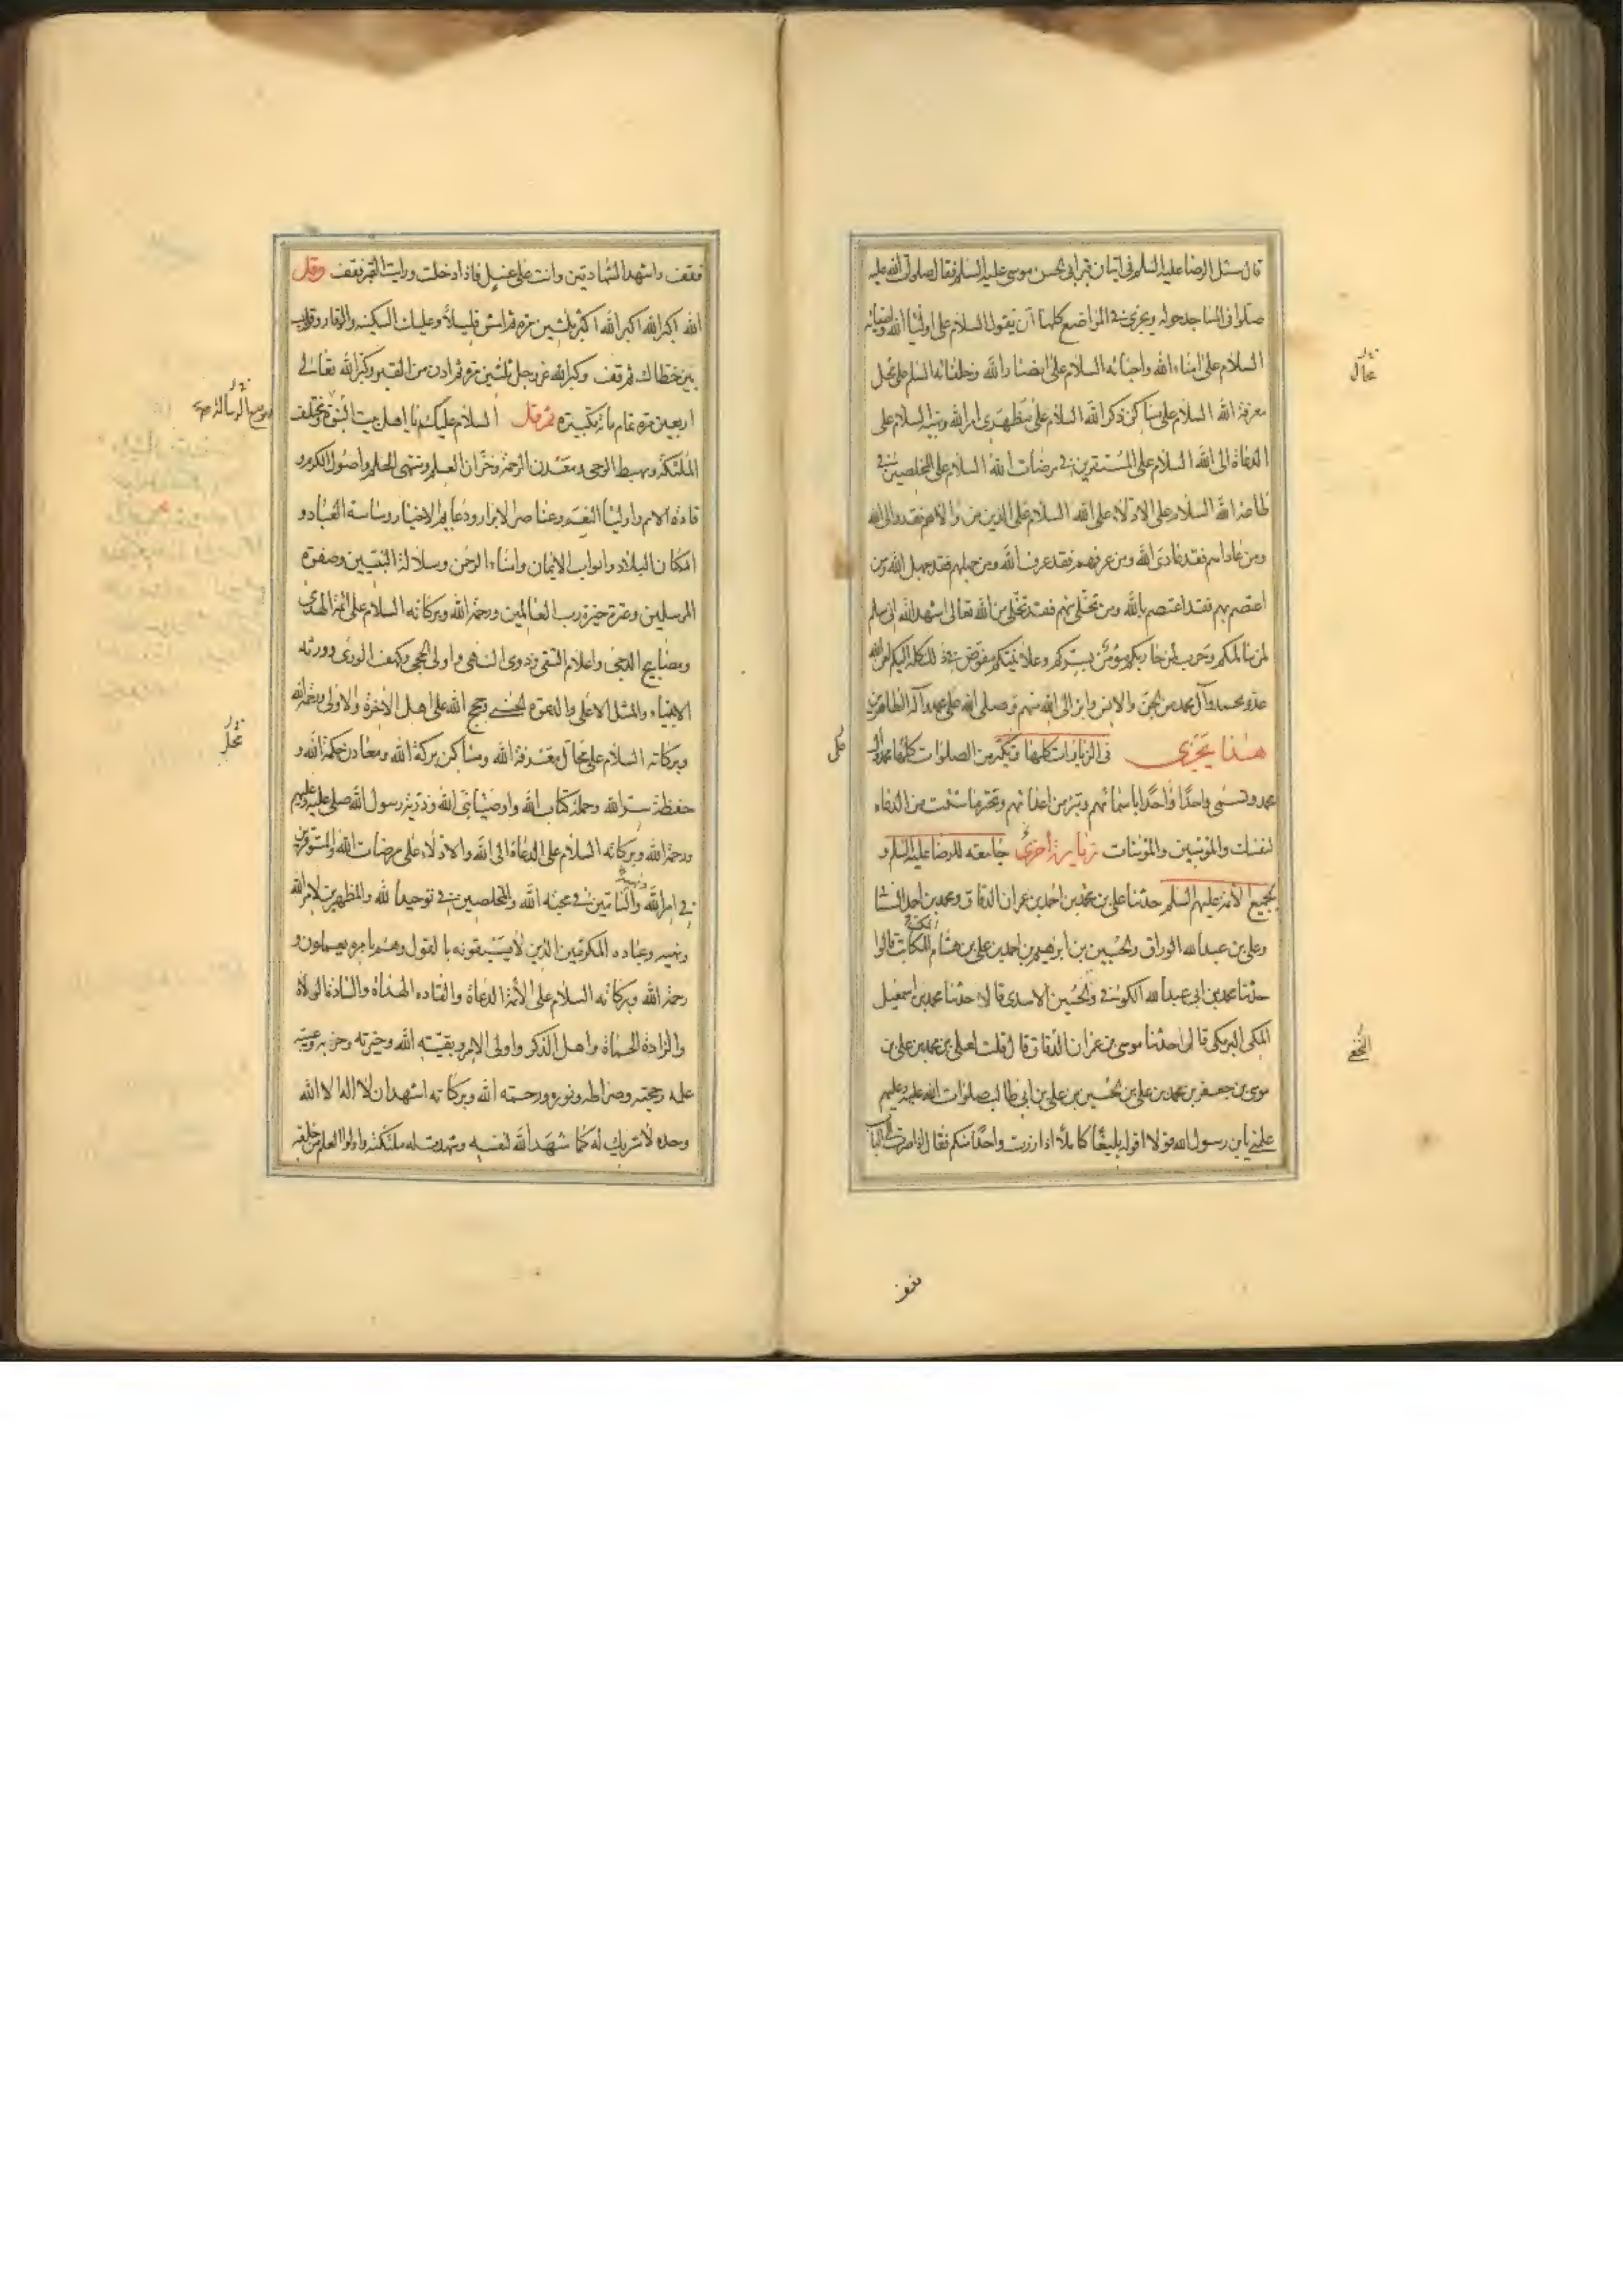 قال سئل الرضا عليه السلم فى اتيان قبر ابى الحسن موسى عليه السلم فقال صلوات الله عليه
صلوا فى المساجد حوله ويجزى فى المواضع كلها ان يقول السلام على اولياء الله واصفيائه
السلام على امناء الله واحبائه السلام على انصار الله وخلفائه السلم على محل
معرفة الله السلام على مساكن ذكر الله السلام على مظهرى امر الله ونهيه السلام على
الدعاة الى الله السلام على المستقرين فى مرضات الله السلام على المخلصين فى
طاعة الله السلام على الادلاء على الله السلام على الذين من والاهم فقد والى الله
ومن عاداهم فقد عادى الله ومن عرفهم فقد عرف الله ومن جهلهم فقد جهل الله ومن
اعتصم بهم فقد اعتصم بالله ومن تخلى منهم فقد تخلى من الله تعالى اشهد الله انى سلم
لمن سالمكم وحرب لمن حاربكم مؤمن بسركم وعلانيتكم مفوض فى ذلك كله اليكم لعن الله
عدو محمد وآل محمد من الجن والانس وابرا الى الله منهم وصلى الله على محمد وآله الطاهرين
هذا يجزى فى الزيارات كلها وتكثر من الصلوات كلها محمد وآل
محمد وتسمى واحدًا واحدًا باسمائهم وتبرء من اعدائهم وتخير ما شئت من الدعاء
لنفسك والمؤمنين والمؤمنات زيارة اخرى جامعه للرضا عليه السلم و
لجميع الأئمة عليهم السلم حدثنا على بن محمد بن احمد بن عمران الدقاق ومحمد بن احمد السنا
وعلى بن عبد الله الوراق والحسين بن ابرهيم بن احمد بن على بن هشام المكاتب قالوا
حدثنا محمد بن ابى عبد الله الكوفى والحسين الاسدى قالا حدثنا محمد بن اسمعيل
المكى البرمكى قال حدثنا موسى بن عمران الدقاق قال قلت لعلى بن محمد بن على بن
موسى بن جعفر بن محمد بن على بن الحسين بن على بن ابى طالب صلوات الله عليه وعليهم
علمنى يابن رسول الله قولا اقوله بليغًا كاملًا اذا زرت واحدًا منكم فقال اذا صرت الى الباب
محال
كل
النخعى
فقف
فقف واشهد الشهادتين وانت على غسل فاذا دخلت ورايت القبر فقف وقل
الله اكبر الله اكبر الله اكبر ثلثين مرة ثم امش قليلًا وعليك السكينه والوقار وقارب
بين خطاك ثم قف وكبر الله عز وجل ثلثين مرة ثم ادن من القبر وكبر الله تعالى
اربعين مرة تمام مائة تكبيرة ثم قل السلام عليكم يا اهل بيت النبوة ومختلف
الملئكة ومهبط الوحى ومعدن الرحمة وخزان العلم ومنتهى الحلم واصول الكرم و
قادة الامم واولياء النعم وعناصر الابرار ودعايم الاخيار وساسة العباد و
اركان البلاد وابواب الايمان وامناء الرحمن وسلالة النبيين وصفوة
المرسلين وعترة خيرة رب العالمين ورحمة الله وبركاته السلام على ائمة الهدى
ومصابيح الدجى واعلام التقى وذوى النهى واولى الحجى وكهف الورى وورثه
الانبياء والمثل الاعلى والدعوة الحسنى وحجج الله على اهل الآخرة والاولى ورحمة الله
وبركاته السلام على محال معرفة الله ومساكن بركة الله ومعادن حكمة الله و
حفظة سر الله وحملة كتاب الله واوصياء نبى الله وذرية رسول الله صلى عليه وعليهم
ورحمة الله وبركاته السلام على الدعاة الى الله والادلاء على مرضات الله والمستوفرين
فى امر الله والتامين فى محبة الله والمخلصين فى توحيد الله والمظهرين لامر الله
ونهيه وعباده المكرمين الذين لا يسبقونه بالقول وهم بامره يعملون و
رحمة الله وبركاته السلام على الأئمة الدعاة والقاده الهداة والسادة الولاة
والزادة الحماة واهل الذكر واولى الامر وبقيته الله وخيرته وحزبه وعيبته
علمه وحجته وصراطه ونوره ورحمته الله وبركاته اشهد ان لا اله الا الله
وحده لا شريك له كما شهد الله لنفسه وشهدت له ملئكته واولوا العلم من خلقه
وموضع الرسالة
محل